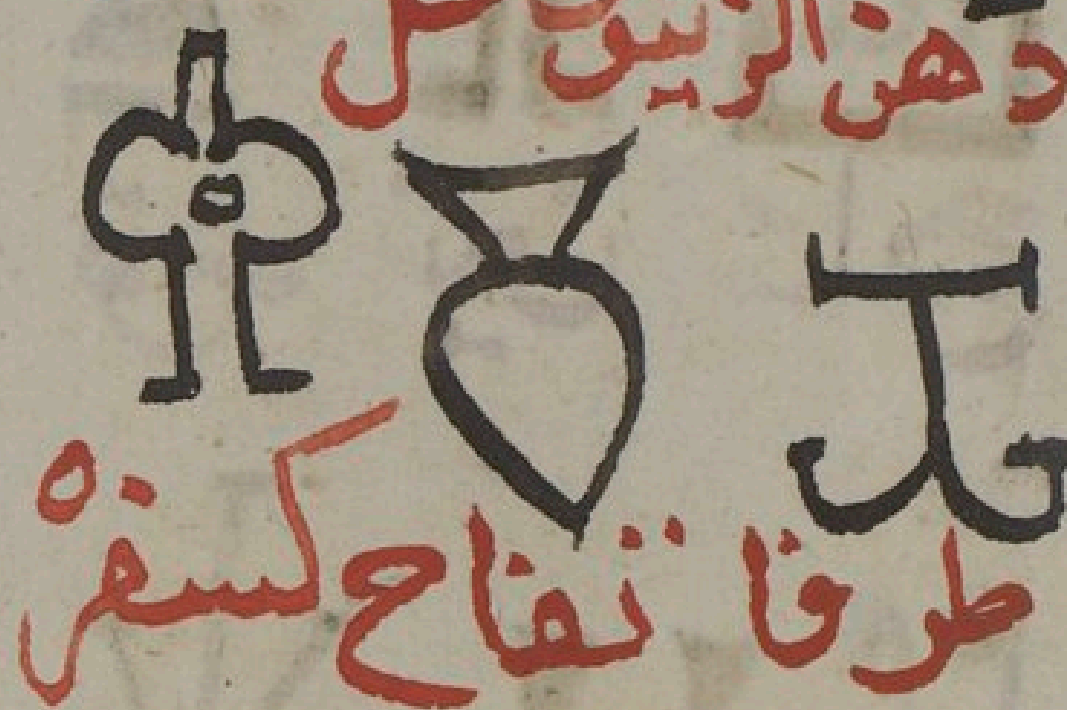 دهن الزيبق
طرفا تفاح كسفره